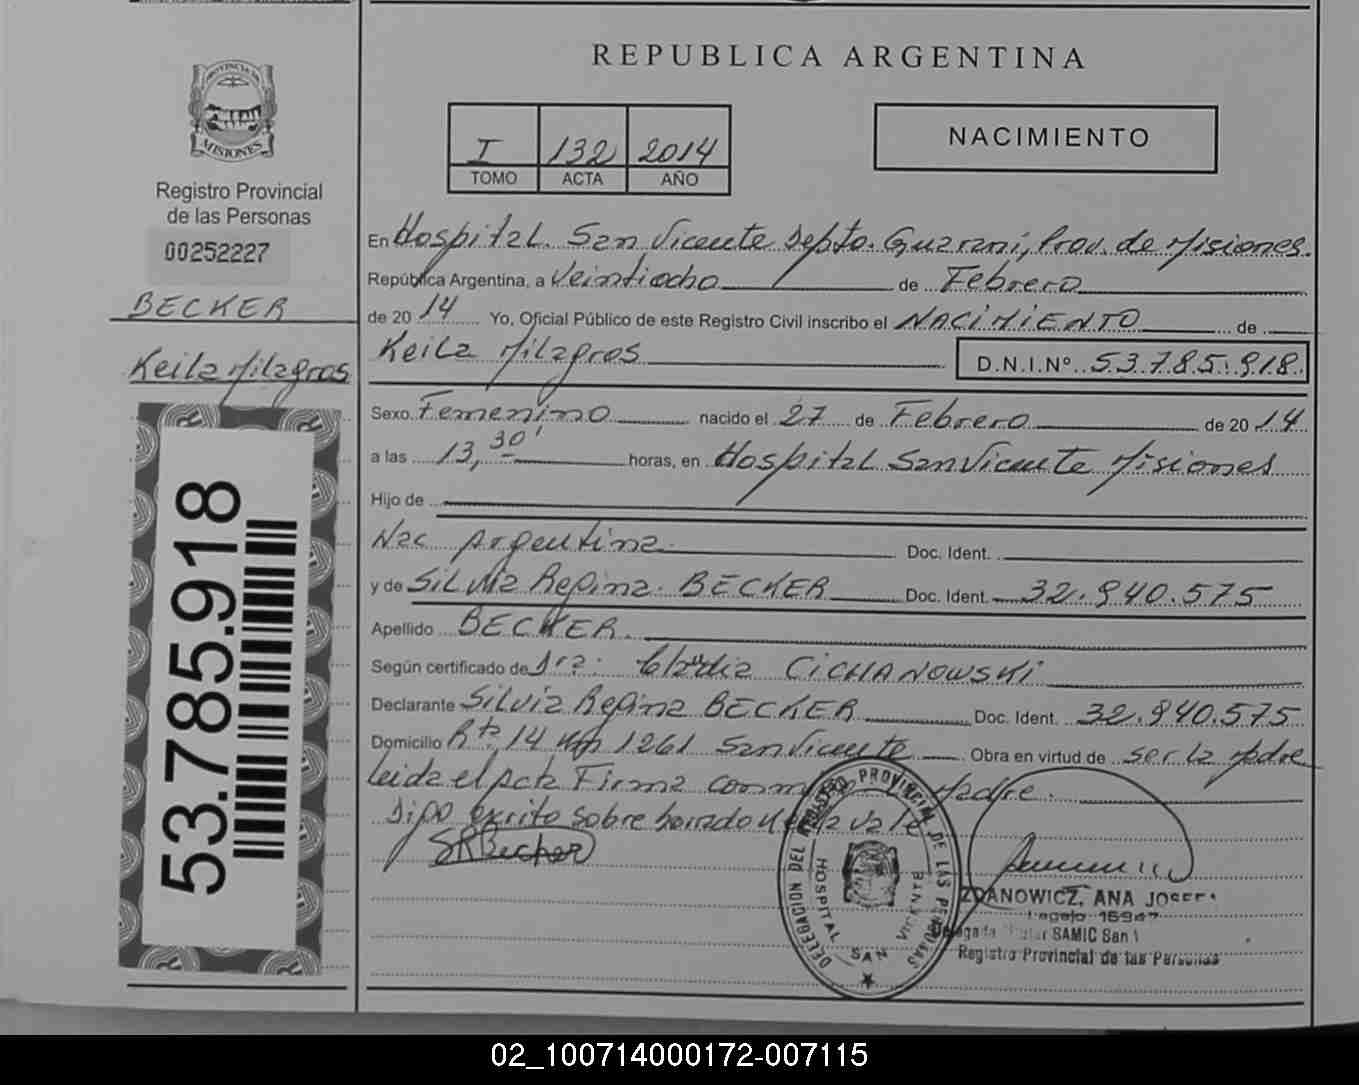 PROVINCIA DE
MISIONES
Registro Provincial
de las Personas
00252227
BECKER
Keila Milagros
53.785.918
REPUBLICA ARGENTINA
I 132 2014
TOMO ACTA AÑO
NACIMIENTO
En Hospital San Vicente Depto. Guaraní, Prov. de Misiones.
República Argentina, a Veintiocho de Febrero
de 2014 Yo, Oficial Público de este Registro Civil inscribo el NACIMIENTO de
Keila Milagros D.N.I.Nº 53.785.918
Sexo Femenino nacido el 27 de Febrero de 2014
a las 13,30' horas, en Hospital San Vicente Misiones
Hijo de
Nac Argentina Doc. Ident.
y de Silvia Regina BECKER Doc. Ident. 32.940.575
Apellido BECKER
Según certificado de Dra: Claudia CICHANOWSKI
Declarante Silvia Regina BECKER Doc. Ident. 32.940.575
Domicilio Rta. 14 Km 1261 San Vicente Obra en virtud de ser la Madre
leida el Acta Firma conmigo Madre.
Digo escrito sobre borrado vale
SRBecker
DELEGACION DEL REGISTRO PROVINCIAL DE LAS PERSONAS
HOSPITAL SAN VICENTE
ZDANOWICZ, ANA
Legajo
Delegada Titular SAMIC San V
Registro Provincial de las Personas
02_100714000172-007115